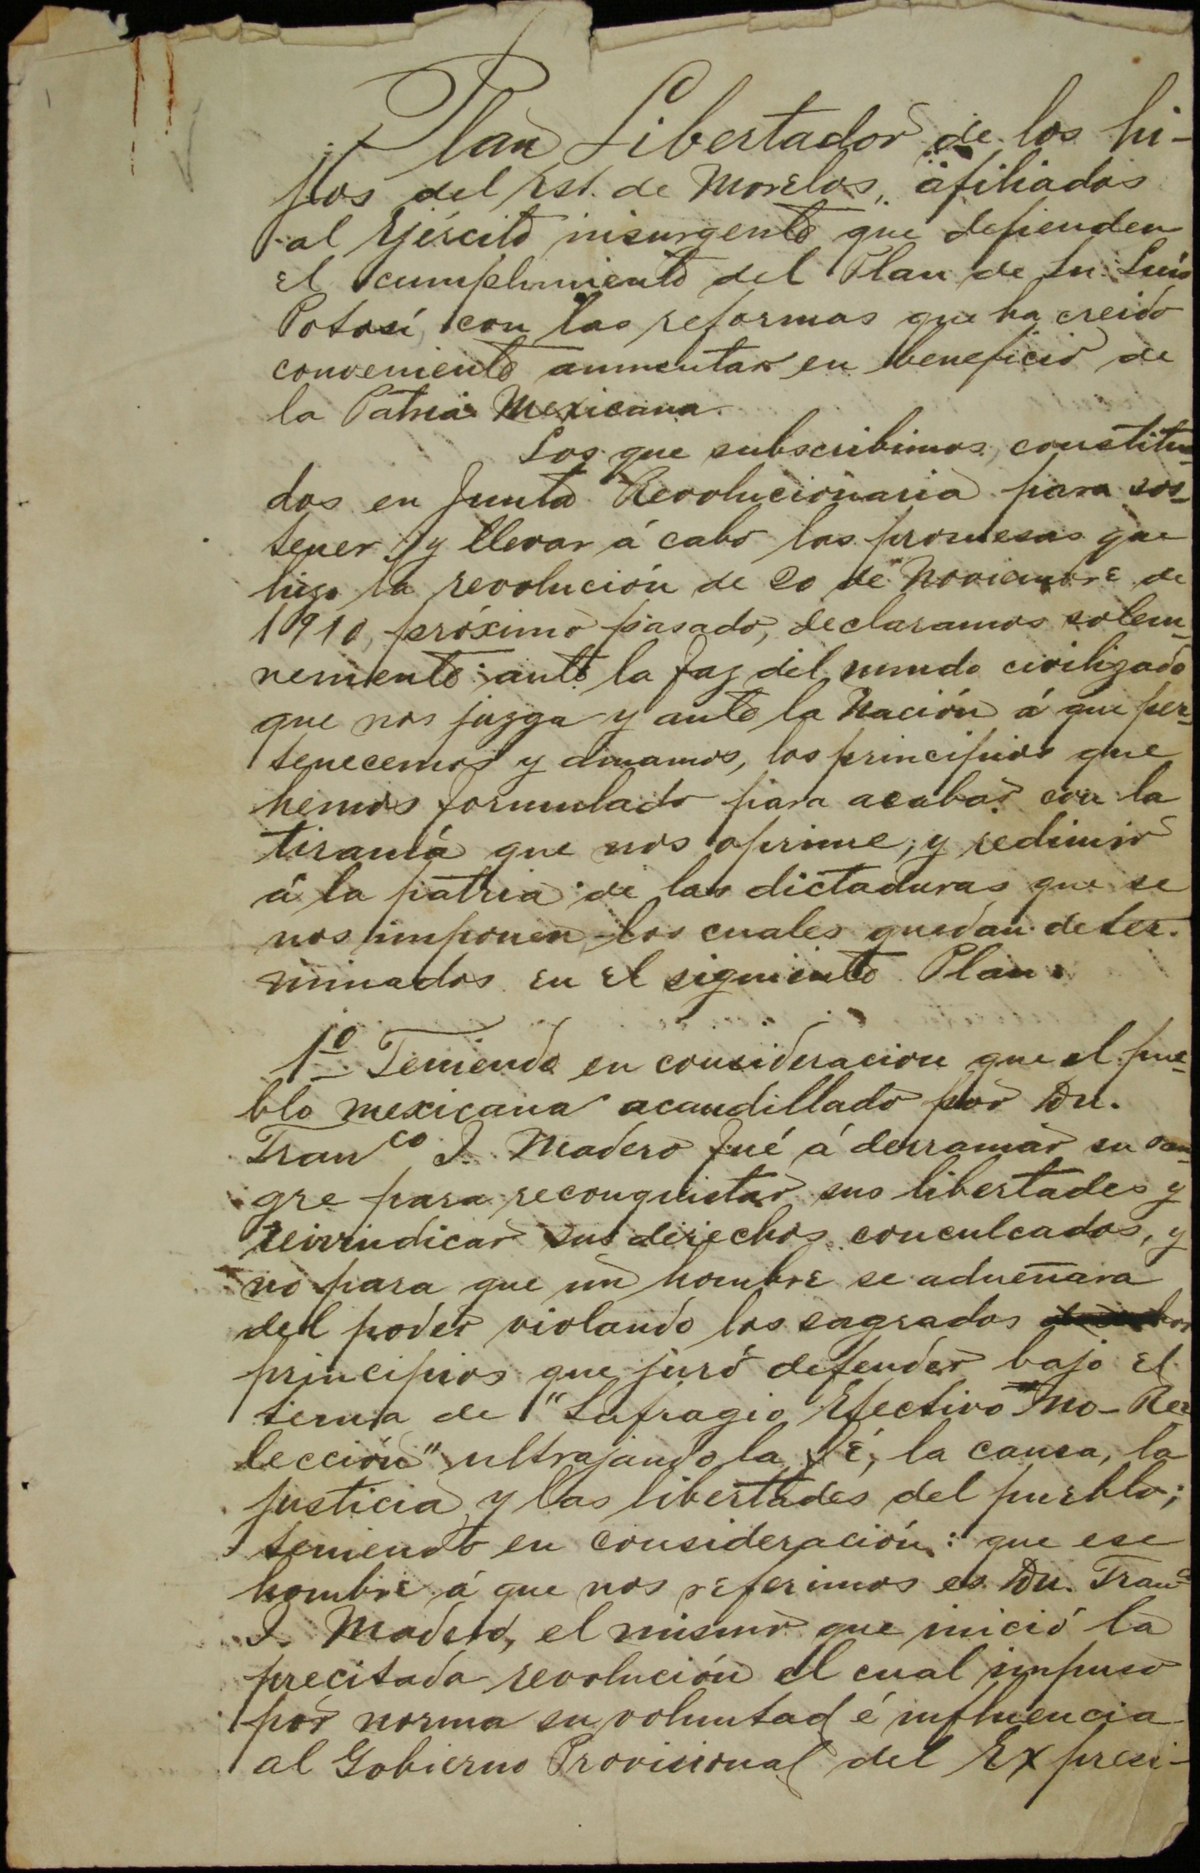 Plan Libertador de los hi-
jos del Est. de Morelos, afiliados
al Ejército insurgente que defienden
el cumplimiento del Plan de Sn. Luis
Potosí, con las reformas que ha creido
conveniente aumentar en beneficio de
la Patria Mexicana.
Los que subscribimos, constitui-
dos en Junta Revolucionaria para sos-
tener y llevar á cabo las promesas que
hizo la revolución de 20 de Noviembre de
1910, próximo pasado, declaramos solem-
nemente ante la faz del mundo civilizado
que nos juzga y ante la Nación á que per-
tenecemos y amamos, los principios que
hemos formulado para acabar con la
tiranía que nos oprime, y redimir
á la patria de las dictaduras que se
nos imponen, los cuales quedan deter-
minados en el siguiente Plan:
1º Teniendo en consideracion que el pue-
blo mexicano acaudillado por Dn.
Franco I. Madero fué á derramar su san-
gre para reconquistar sus libertades y
reivindicar sus derechos conculcados, y
no para que un hombre se adueñara
del poder violando los sagrados
principios que juró defender bajo el
tema de "Sufragio Efectivo No-Ree-
lección" ultrajando la fé, la causa, la
justicia y las libertades del pueblo;
teniendo en consideración: que ese
hombre á que nos referimos es Dn. Franco
I. Madero, el mismo que inició la
precitada revolución el cual impuso
por norma su voluntad é influencia
al Gobierno Provisional del Ex presi-